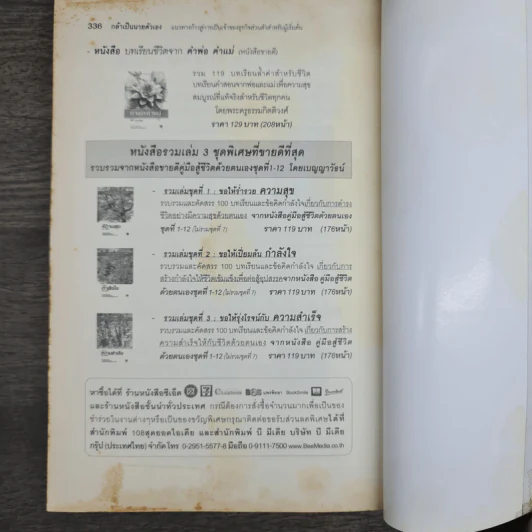 336 กล้าเป็นนายตัวเอง แนวทางก้าวสู่การเป็นเจ้าของธุรกิจส่วนตัวสำหรับผู้เริ่มต้น
- หนังสือ บทเรียนชีวิตจาก คำพ่อ คำแม่ (หนังสือขายดี)
รวม 119 บทเรียนล้ำค่าสำหรับชีวิต
บทเรียนคำสอนจากพ่อและแม่เพื่อความสุข
สมบูรณ์ที่แท้จริงสำหรับชีวิตทุกคน
โดยพระครูธรรมกิตติวงศ์
ราคา 129 บาท (208หน้า)
หนังสือรวมเล่ม 3 ชุดพิเศษที่ขายดีที่สุด
รวบรวมจากหนังสือขายดีคู่มือสู้ชีวิตด้วยตนเองชุดที่1-12 โดยเบญญาวัธน์
- รวมเล่มชุดที่ 1 : ขอให้ร่ำรวย ความสุข
รวบรวมและคัดสรร 100 บทเรียนและข้อคิดกำลังใจเกี่ยวกับการดำรง
ชีวิตอย่างมีความสุขด้วยตนเอง จากหนังสือคู่มือสู้ชีวิตด้วยตนเอง
ชุดที่ 1-12 (ไม่รวมชุดที่ 7) ราคา 119 บาท (176หน้า)
- รวมเล่มชุดที่ 2 : ขอให้เปี่ยมล้น กำลังใจ
รวบรวมและคัดสรร 100 บทเรียนและข้อคิดกำลังใจ เกี่ยวกับการ
สร้างกำลังใจให้ชีวิตเข้มแข็งเพื่อต่อสู้อุปสรรคจากหนังสือ คู่มือสู้ชีวิต
ด้วยตนเองชุดที่ 1-12 (ไม่รวมชุดที่ 7) ราคา 119 บาท (176หน้า)
- รวมเล่มชุดที่ 3 : ขอให้รุ่งโรจน์กับ ความสำเร็จ
รวบรวมและคัดสรร 100 บทเรียนและข้อคิดกำลังใจ เกี่ยวกับการสร้าง
ความสำเร็จให้กับชีวิตด้วยตนเอง จากหนังสือ คู่มือสู้ชีวิต
ด้วยตนเองชุดที่ 1-12 (ไม่รวมชุดที่ 7) ราคา 119 บาท (176หน้า)
หาซื้อได้ที่ ร้านหนังสือซีเอ็ด
และร้านหนังสือชั้นนำทั่วประเทศ กรณีต้องการสั่งซื้อจำนวนมากเพื่อเป็นของ
ชำร่วยในงานต่างๆหรือเป็นของขวัญพิเศษกรุณาติดต่อขอรับส่วนลดพิเศษได้ที่
สำนักพิมพ์ 108สุดยอดไอเดีย และสำนักพิมพ์ บี มีเดีย บริษัท บี มีเดีย
กรุ๊ป (ประเทศไทย) จำกัด โทร 0-2951-5577-8 มือถือ 0-9111-7500 www.BeeMedia.co.th